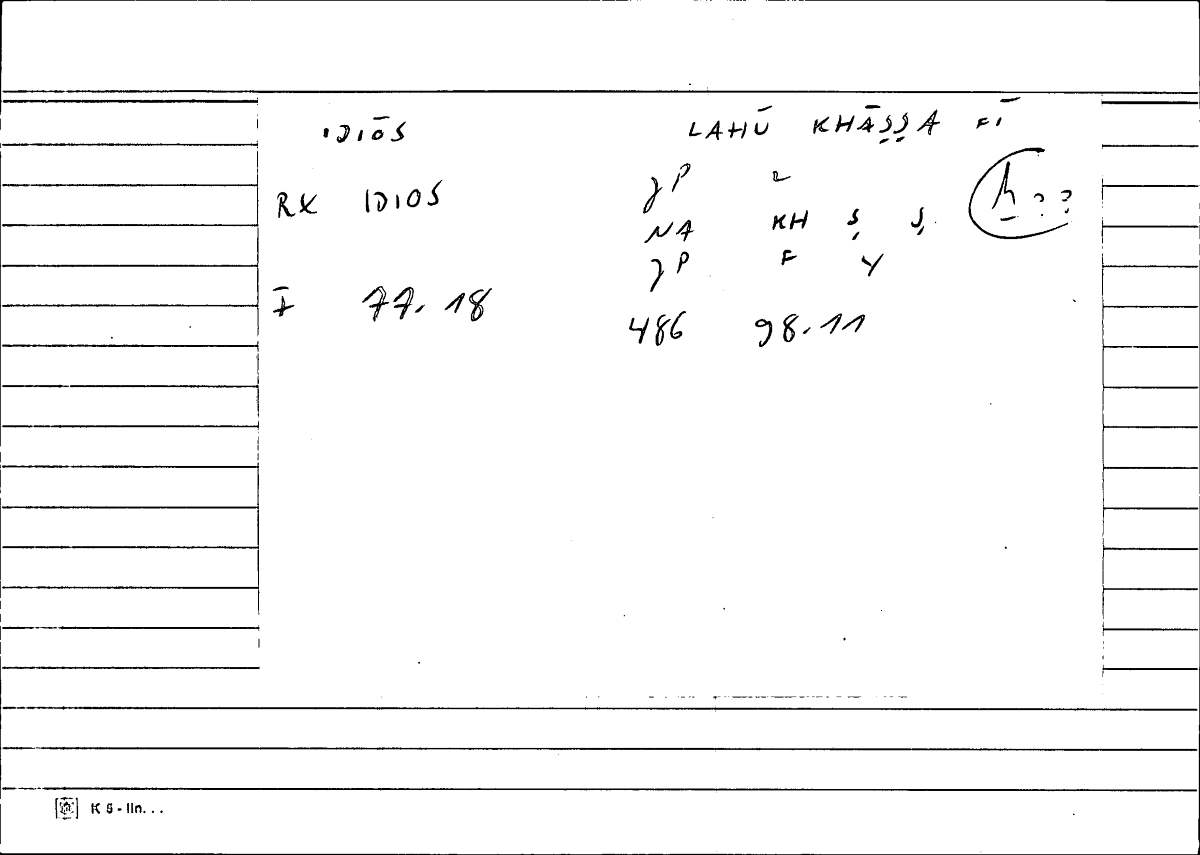 IDIŌS LAHŪ KHĀṢṢA FĪ
JP L
RX IDIOS
NA KH Ṣ Ṣ
JP F Y
Ī 77.18
486 98.11
K 5 - lln...